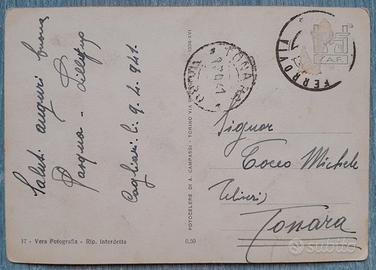 Saluti auguri buona
Pasqua -
Cagliari li 9-4-941.
17 - Vera Fotografia - Rip. Interdetta
0,50
FOTOCELERE DI A. CAMPASSI - TORINO VIA
XVI
TONARA
FERROVIA
Z.A.F.
Signor
Tocco Michele
Tonara
Subito